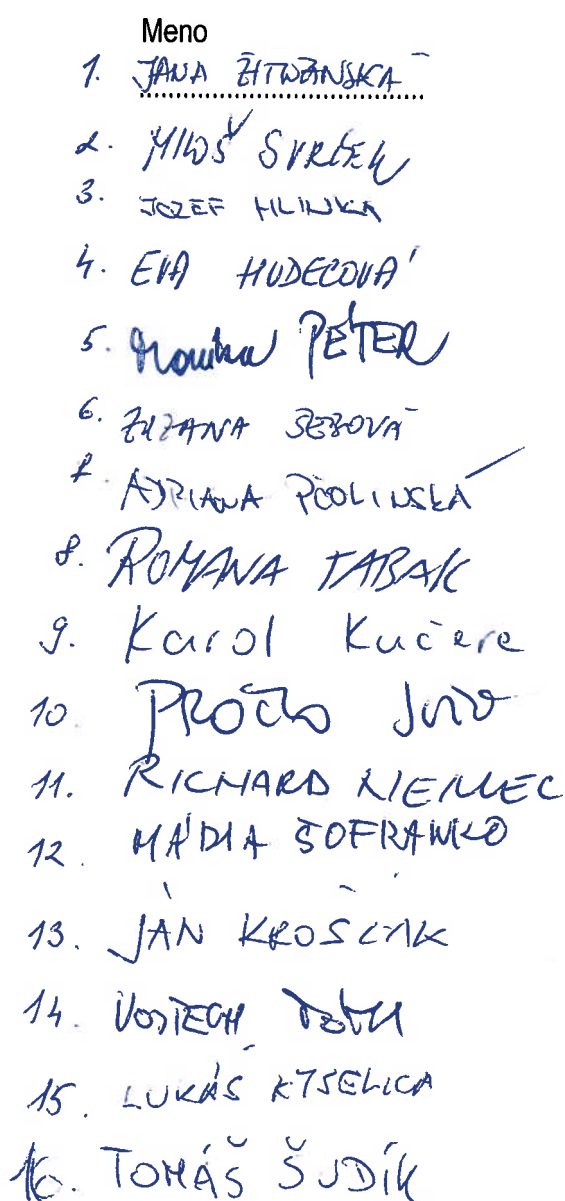 Meno
1. JANA ŽITŇANSKÁ
2. MILOŠ SVRČEK
3. JOZEF HLINKA
4. EVA HUDECOVÁ
5. Monika PÉTER
6. ZUZANA ŠEBOVÁ
7. ADRIANA PČOLINSKÁ
8. ROMANA TABAK
9. Karol Kučera
10. PROČKO
11. RICHARD NEMEC
12. ŠOFRANKO
13. JÁN KROŠLÁK
14. VOJTECH TÓTH
15. LUKÁŠ KYSELICA
16. TOMÁŠ ŠUDÍK